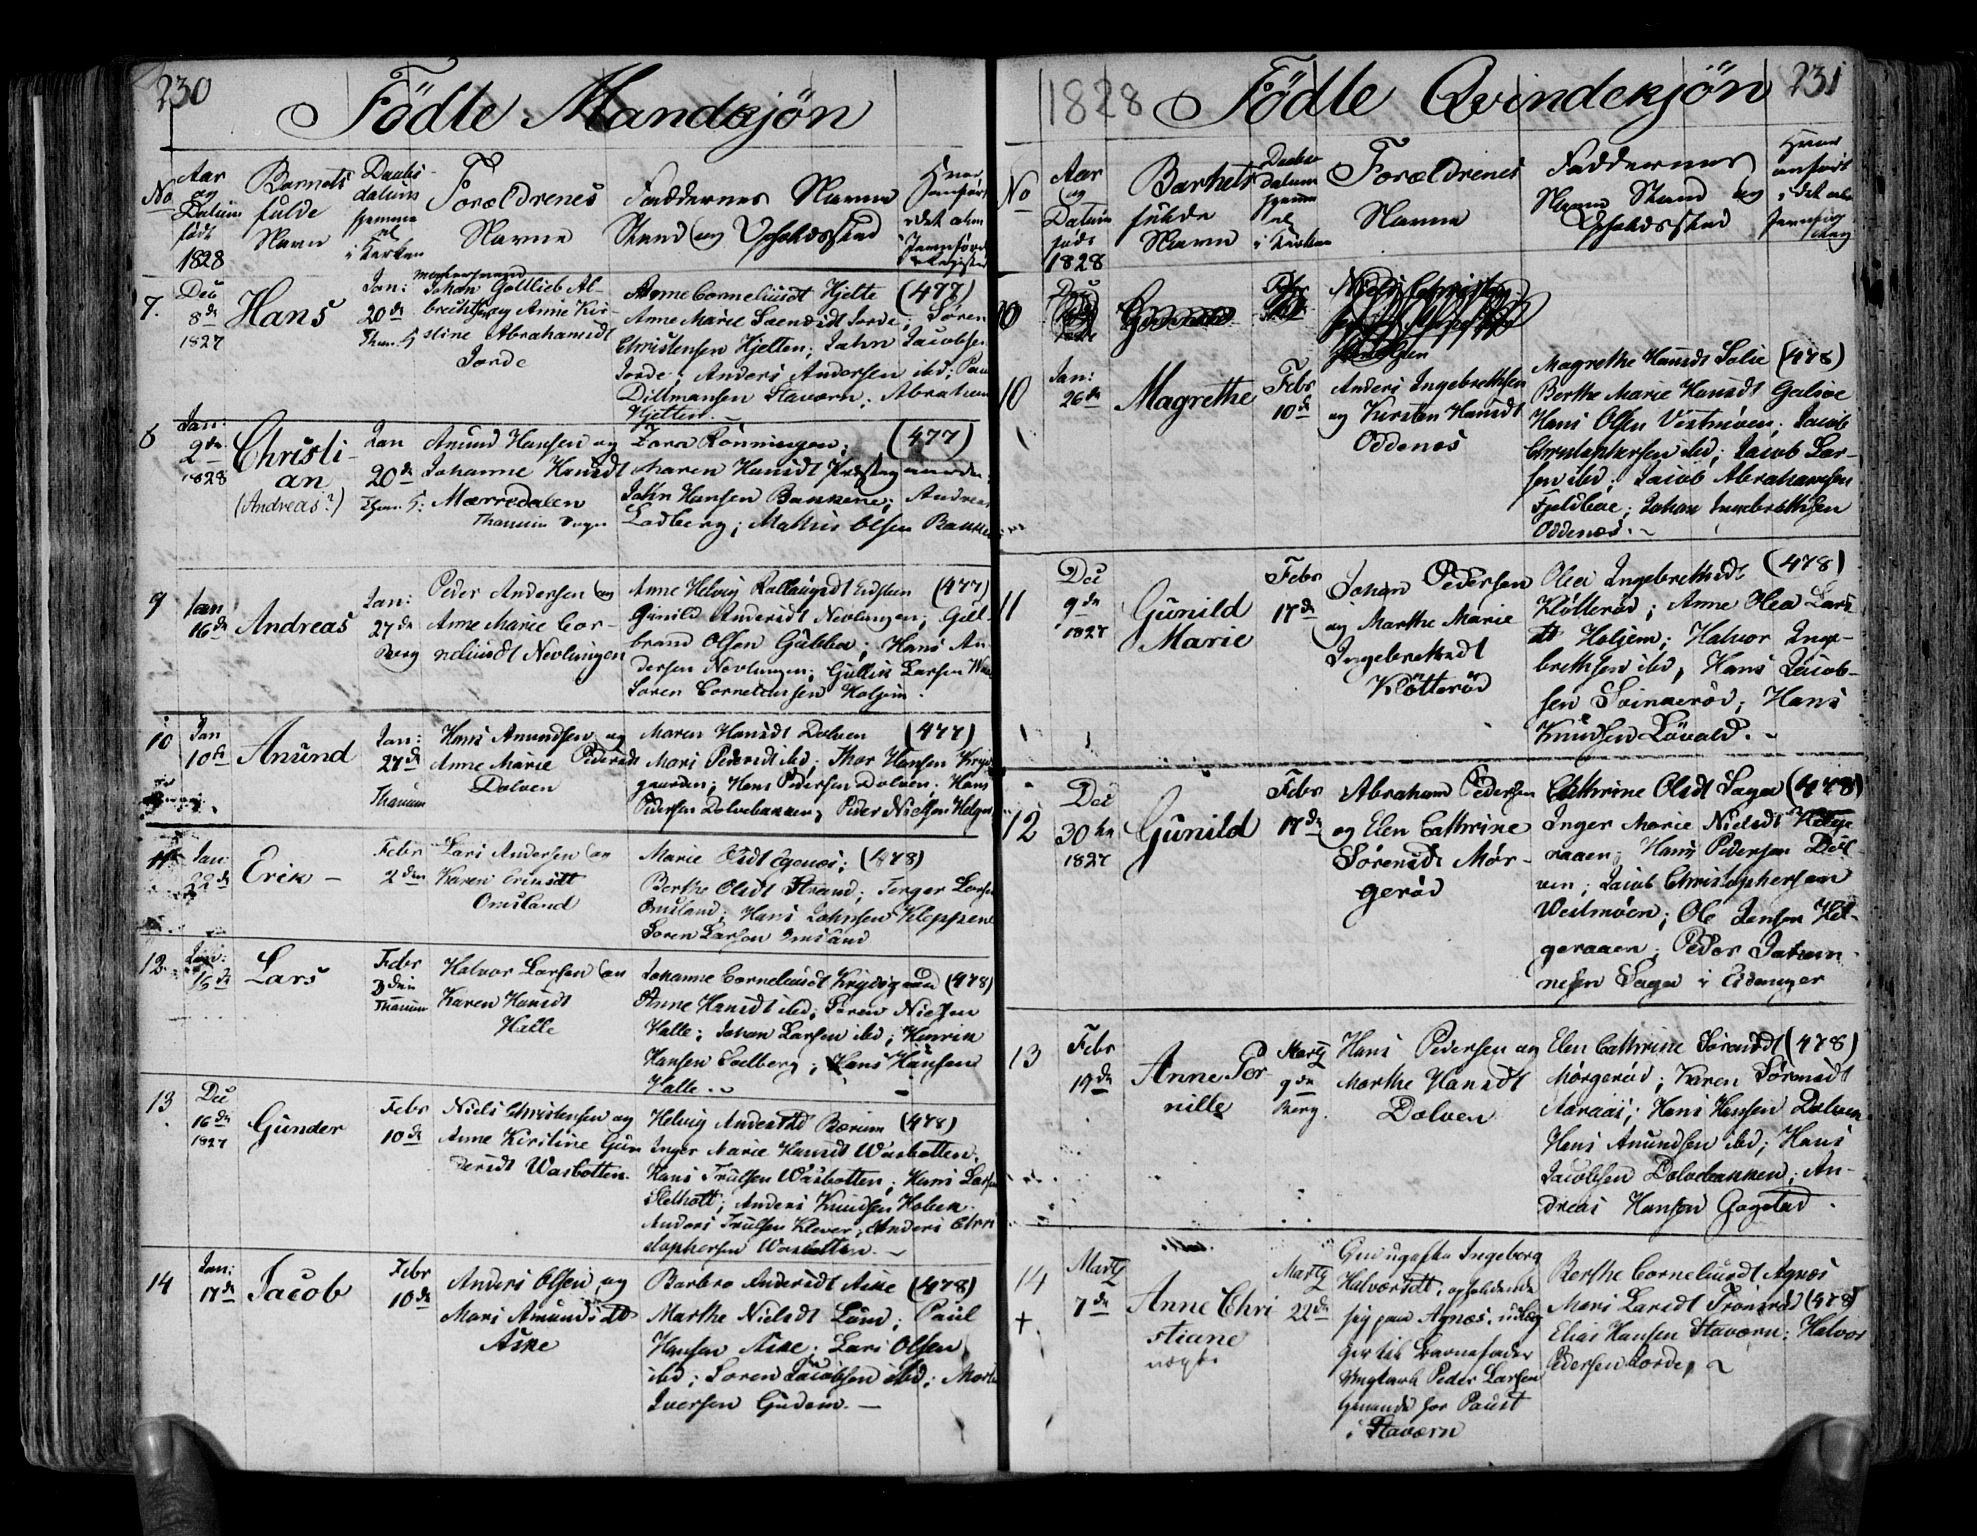 230
Födte Mandkjön
No
Aar
og
Datum
født
1828
Barnets
fulde
Navn
Daabs
datum
hjemme
el
i Kirken
Forældrenes
Navne
Faddernes Navne
Stand og Opholdssted
7.
Dec
8de
1827
Hans
Jan:
20de
Johan Gottlieb Al-
brechtsen og Anne Kir-
stine Abrahamsdt
Jorde
Anne Corneliusdt Hjelte (477)
Anne Marie Svendsdt Jorde; Søren
Christensen Hjelten; Jahn Jacobsen
Jorde; Anders Andersen ibd; Paul
Dillmansen Staværn; Abraham
Hjelten.
8
Jan:
2de
1828
Christi-
an
(Andreas?)
Jan
20de
Anund Hansen og
Johanne Hansdt
Mørredalen
Zora Rönningen; (477)
Maren Hansdt
John Hansen Bankene; Andreas
Ladberg; Mathis Olsen
9
Jan
16de
Andreas
Jan:
27de
Berg
Peder Andersen og
Anne Marie Cor-
neliusdt Nevlungen
Anne Helvig (477)
Gunild Andersdt Nevlungen; Gul-
brand Olsen Gubben; Hans An-
dersen Nevlungen; Gullik Larsen
Søren Corneliussen Holjem.
10
Jan
10de
Anund
Jan:
27de
Thanum
Hans Anundsen og
Anne Marie Pedersdt
Dolven
Maren Hansdt Dolven (477)
Mari Pedersdt ibd; Thor Hansen
gaarden; Hans Pedersen Dolven; Hans
Pedersen Dolvebakken; Peder Nielsen
11
Jan:
22de
Erik -
Febr
2den
Lars Andersen og
Karen
Omsland
Marie Olsdt (478)
Berthe Olsdt Strand; Torger Larsen
Omsland; Hans Johnsen Kleppene
Søren Larsen Omsland
12
Jan:
16de
Lars
Febr
Thanum
Halvor Larsen og
Karen Hansdt
Halle
Johanne Corneliusdt (478)
Anne Hansdt ibd; Søren Nielsen
Halle; Johan Larsen ibd; Henrik
Hansen Solberg; Hans Hansen
Halle.
13
Dec
16de
1827
Gunder
Febr
10de
Niels Christensen og
Anne Kirstine Gun
dersdt Wasbotten
Helvig Andersdt Bærum (478)
Inger Marie Hansdt Wasbotten;
Hans Trulsen Wasbotten; Hans Larsen
Sletholt; Anders Knudsen Holsen
Anders Trulsen Klever; Anders Chri
stophersen Wasbotten.
14
Jan:
17de
Jacob
Febr
10de
Anders Olsen og
Mari Amundsdt
Aske
Barbro Andersdt Aske (478)
Marthe Nielsdt Lund; Paul
Hansen Aske; Lars Olsen
ibd; Søren Jacobsen ibd;
Iversen Gudem.
1828
Födte Qvindekjön
231
No
Aar
og
Datum
født
1828
Barnets
fulde
Navn
Daabs
datum
hjemme
el
i Kirken
Forældrenes
Navne
Faddernes
Navne Stand og
Opholdssted
10
Jan:
26de
Magrethe
Febr
10de
Anders Ingebrethsen
og Kirsten Hansdt
Oddenes
Magrethe Hansdt Solie (478)
Berthe Marie Hansdt Galsøe
Hans Olsen Vestmøen; Jacob
Christophersen ibd; Jacob Lar-
sen ibd; Jacob Abrahamsen
Fjeldbøe; Johan Ingebrethsen
Oddenes.
11
Dec
9de
1827
Gunild
Marie
Febr
17de
Johan Pedersen
og Marthe Marie
Ingebretsdt
Kløtterød
Olea Ingebretsdt (478)
Kløtterød; Anne Olea Lars
dt Holjem; Halvor Inge-
brethsen ibd; Hans Jacob-
sen Svinnerød; Hans
Knudsen Løvald.
12
Dec
30te
1827
Gunild
Febr
17de
Abraham Pedersen
og Elen Cathrine
Sørensdt Mør-
gerød
Cathrine Olsdt Saga (478)
Inger Marie Nielsdt Helge
raaen; Hans Pedersen Dol
ven; Jacob Christophersen
Westmøen; Ole Jensen Hel-
geraaen; Peder Johan-
nesen Saga i Eidanger
13
Febr
19de
Anne Per
nille
Martz
9de
Berg.
Hans Pedersen og
Marthe Hansdt
Dolven
Elen Cathrine Sørensdt (478)
Mørgerød; Karen Sørensdt
Aaraas; Hans Hansen Dolven
Hans Anundsen ibd; Hans
Jacobsen Dolvebakken; An-
dreas Hansen Gogstad.
14
+
Martz
7de
Anne Chri
stiane
uægte
Martz
22de
Gm ugifte Ingeborg
Halvorsdt, opholdende
sig paa Agnæs; udlæg
ger til Barnefader
Ungkarl Peder Larsen
tjenende for Paust
i Staværn
Berthe Corneliusdt Agnæs
Mari Larsdt (478)
Elias Hansen Staværn; Halvor
Pedersen Jorde.